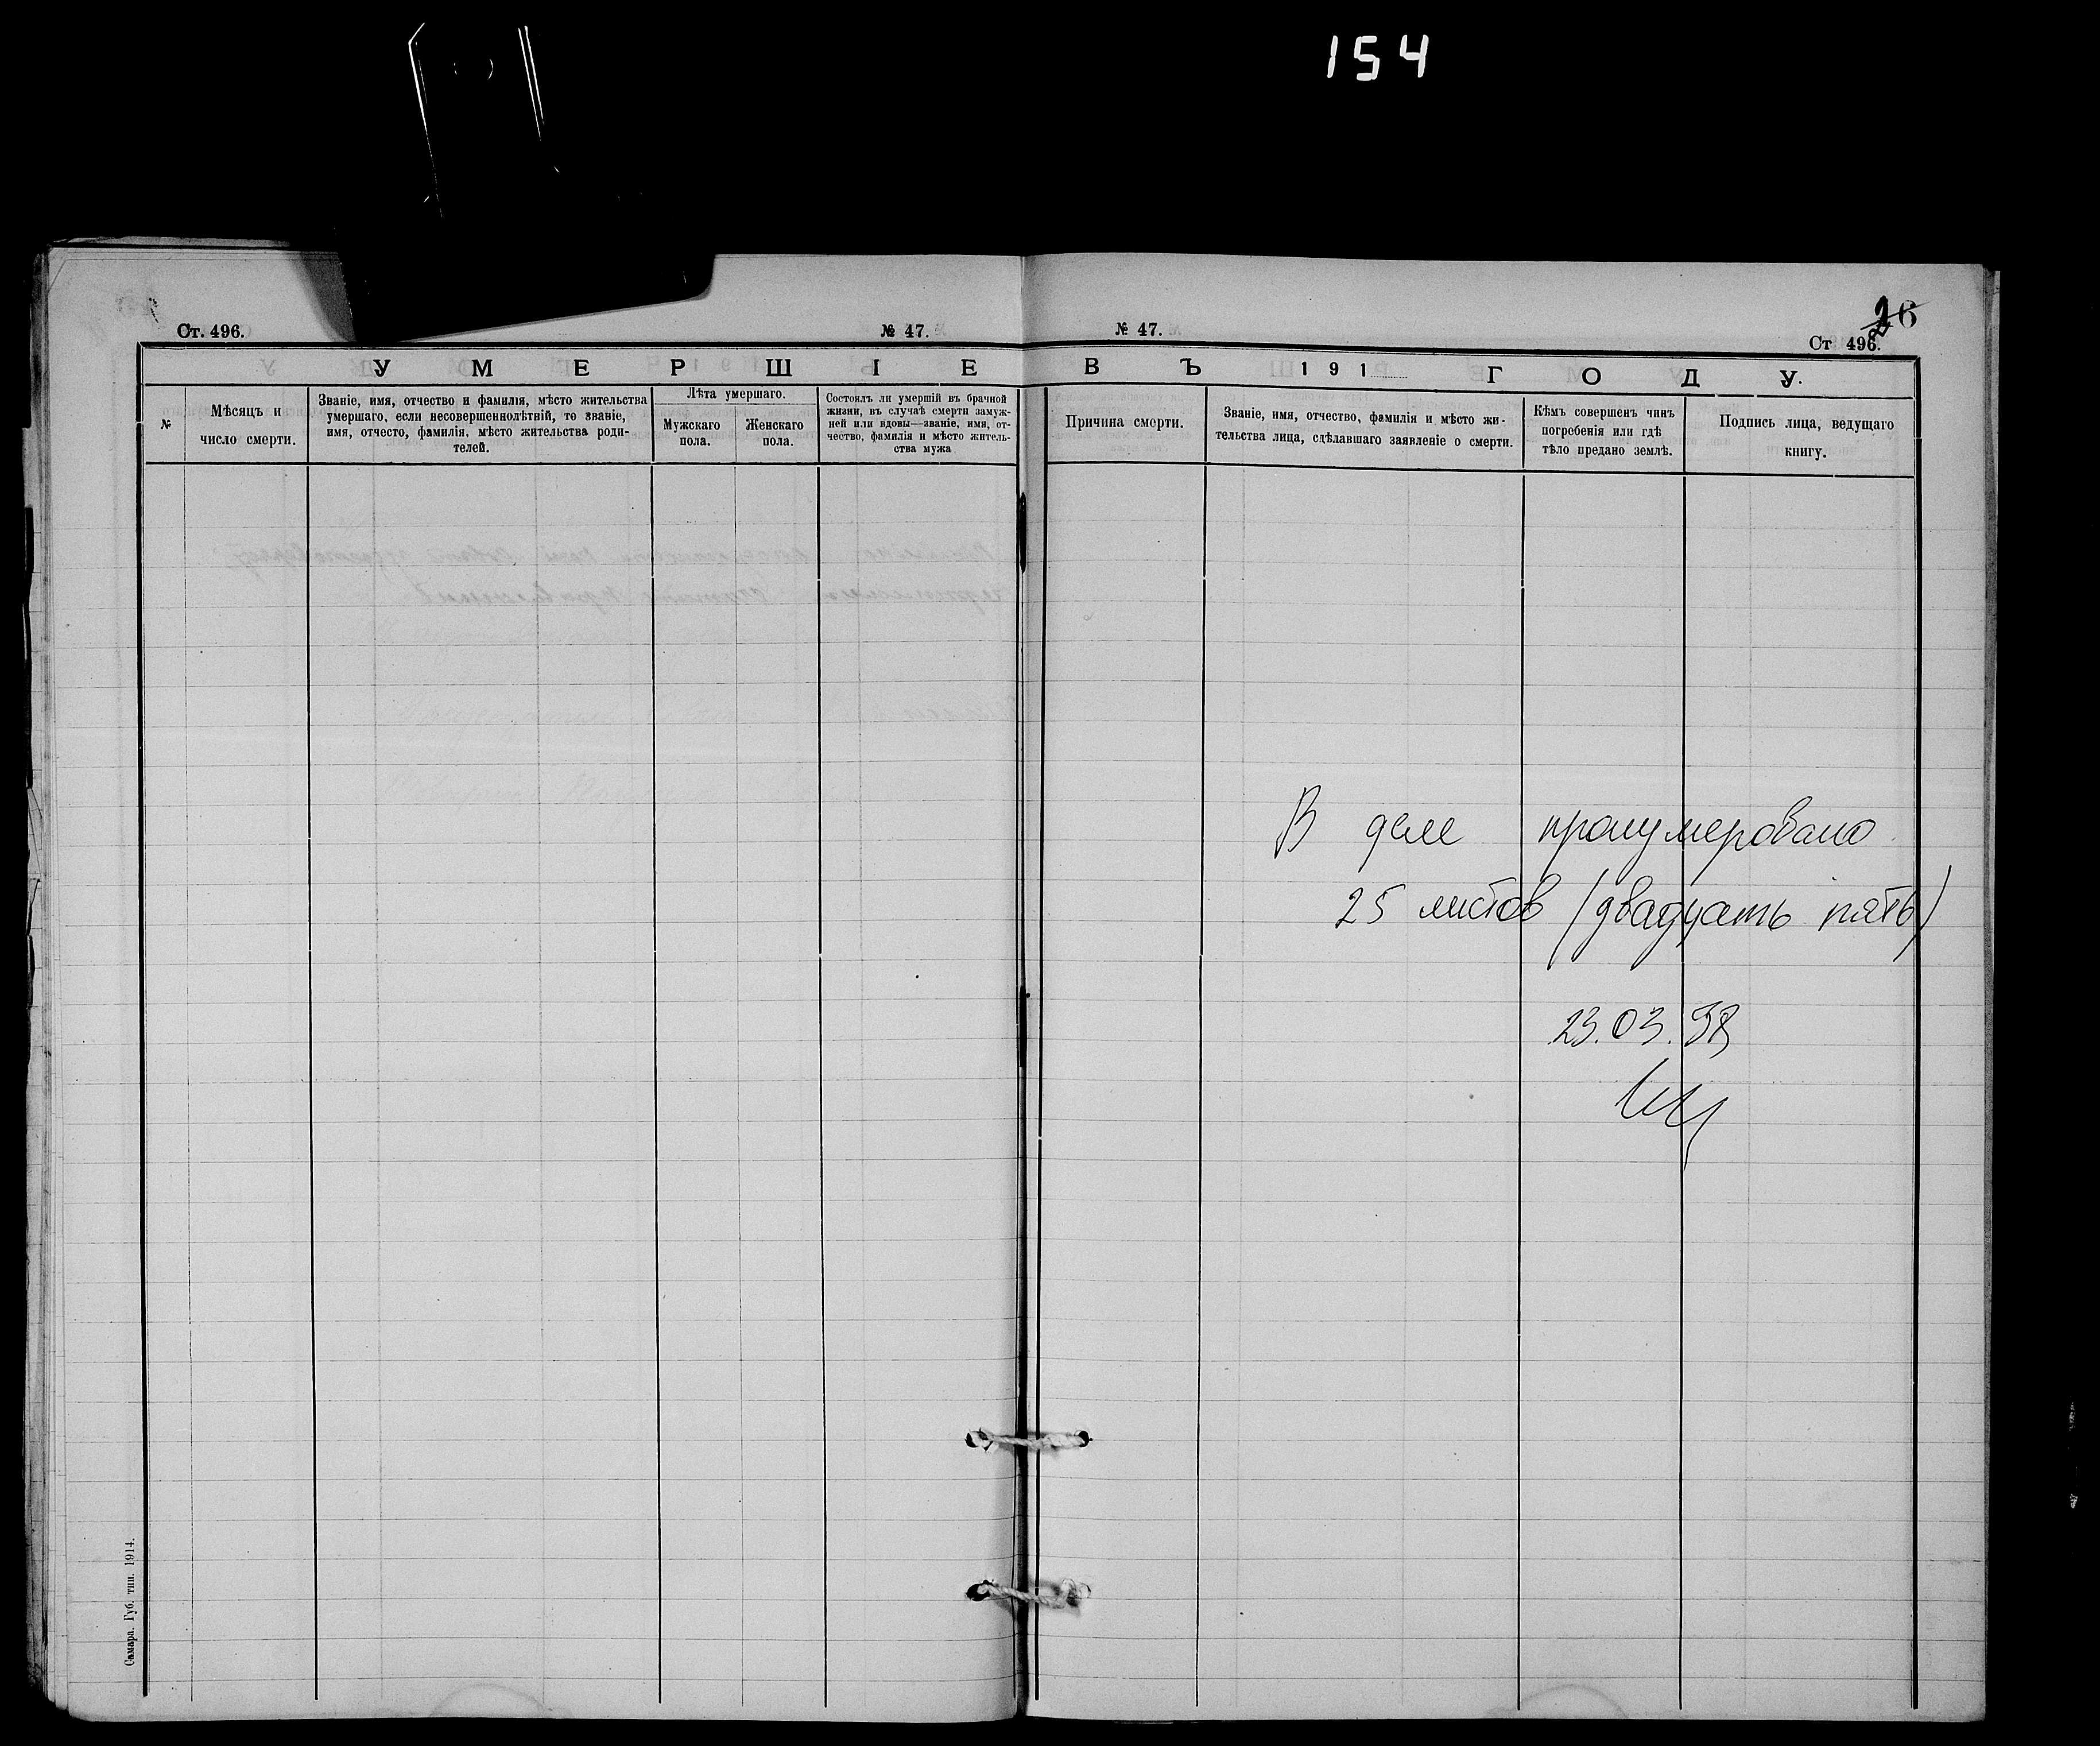 154
Ст. 496.
№ 47.
№ 47.
26
Ст 496.
УМЕРШІЕ ВЪ 191 ГОДУ.
№
Мѣсяцъ и
число смерти.
Званіе, имя, отчество и фамилія, мѣсто жительства
умершаго, если несовершеннолѣтній, то званіе,
имя, отчесто, фамилія, мѣсто жительства роди-
телей.
Лѣта умершаго.
Мужскаго
пола.
Женскаго
пола.
Состоялъ ли умершій въ брачной
жизни, въ случаѣ смерти замуж-
ней или вдовы—званіе, имя, от-
чество, фамилія и мѣсто житель-
ства мужа
Причина смерти.
Званіе, имя, отчество, фамилія и мѣсто жи-
тельства лица, сдѣлавшаго заявленіе о смерти.
Кѣмъ совершенъ чинъ
погребенія или гдѣ
тѣло предано землѣ.
Подпись лица, ведущаго
книгу.
В деле пронумеровано
25 листов (двадцать пять)
23.03.98
Самара. Губ. тип. 1914.